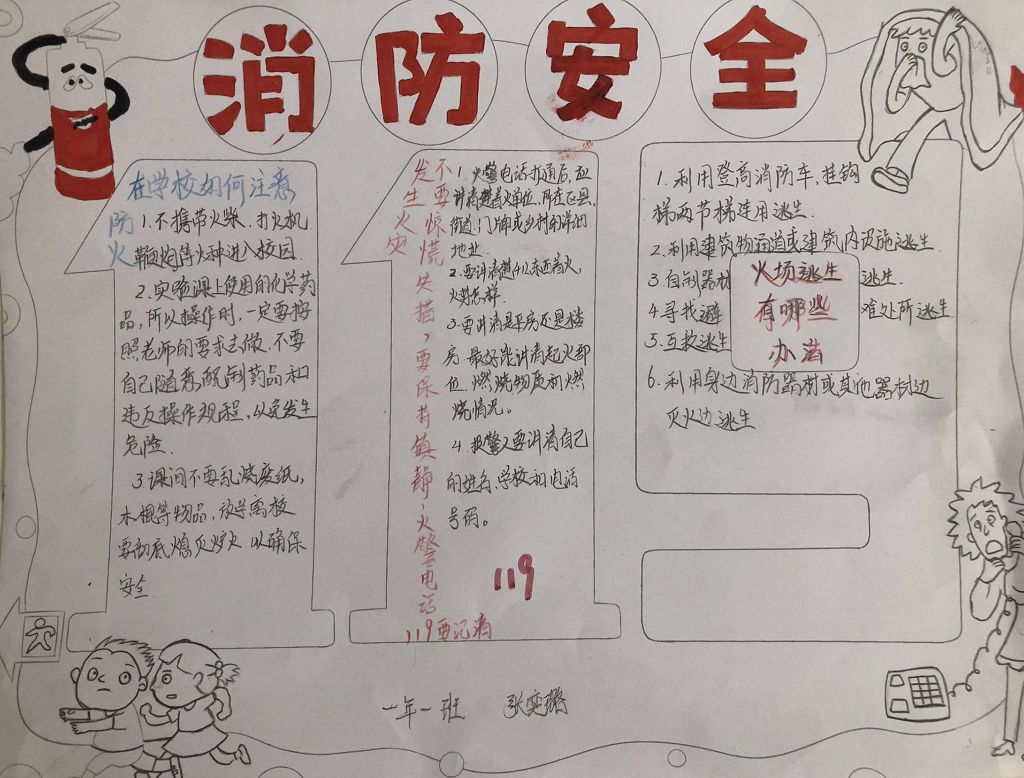 消防安全
在学校如何注意
防火
1.不携带火柴、打火机
鞭炮等火种进入校园.
2.实验课上使用的化学药
品,所以操作时,一定要按
照老师的要求去做,不要
自己随意配制药品和
违反操作规程,以免发生
危险.
3.课间不要乱烧废纸,
木棍等物品,放学离校
要彻底熄灭炉火.以确保
安全.
发生火灾
不要惊慌失措,要保持镇静,火警电话
119要记清
1.火警电话打通后,应
讲清楚着火单位,所在区县、
街道、门牌或乡村的详细
地址.
2.要讲清楚什么东西着火
火势怎样.
3.要讲清是平房还是楼
房.最好能讲清起火部
位,燃烧物质和燃
烧情况。
4.报警人要讲清自己
的姓名、学校和电话
号码。
119
火场逃生
有哪些
办法
1.利用登高消防车,挂钩
梯两节梯连用逃生.
2.利用建筑物通道或建筑内设施逃生.
3.自制器材 逃生.
4.寻找避 难处所逃生.
5.互救逃生
6.利用身边消防器材或其他器材边
灭火边逃生
一年一班 张奕璐